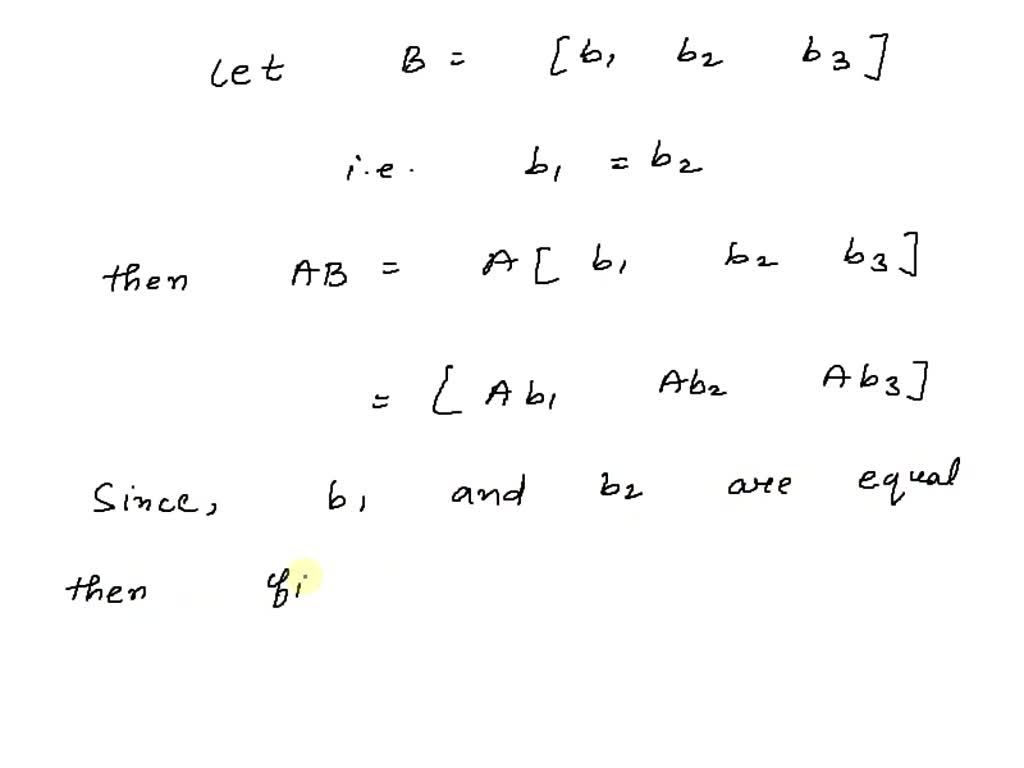 Let B = [b₁ b₂ b₃]
i.e. b₁ = b₂
then AB = A[b₁ b₂ b₃]
= [Ab₁ Ab₂ Ab₃]
Since, b₁ and b₂ are equal
then fi